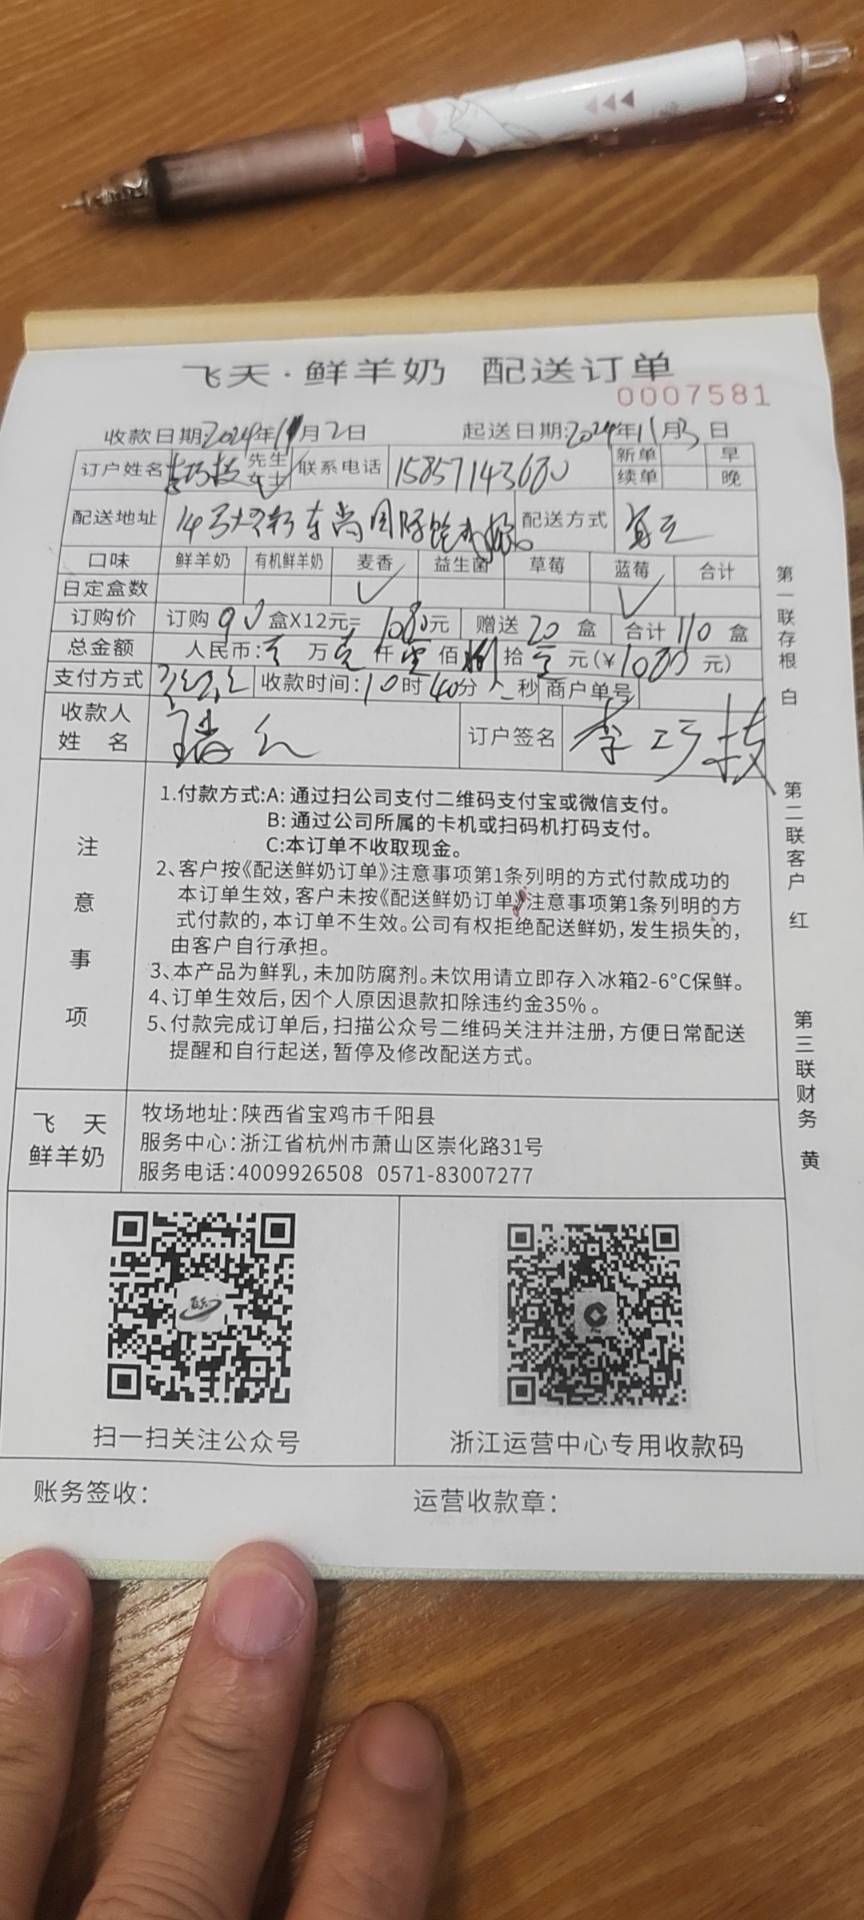 飞天·鲜羊奶 配送订单
0007581
收款日期:2024年11月2日 起送日期:2024年11月3日
订户姓名 李巧技 先生 女士 联系电话 15857143680 新单 早
续单 晚
配送地址 14号 东尚国际 配送方式
口味 鲜羊奶 有机鲜羊奶 麦香 益生菌 草莓 蓝莓 合计
日定盒数 ✓ ✓
订购价 订购90盒X12元=1080元 赠送20盒 合计110盒
总金额 人民币: 万 仟 佰 捌拾 元(¥1080元)
支付方式 收款时间:10时40分 秒 商户单号
收款人
姓 名 订户签名 李巧技
注意事项
1.付款方式:A: 通过扫公司支付二维码支付宝或微信支付。
B: 通过公司所属的卡机或扫码机打码支付。
C:本订单不收取现金。
2、客户按《配送鲜奶订单》注意事项第1条列明的方式付款成功的
本订单生效,客户未按《配送鲜奶订单》注意事项第1条列明的方
式付款的,本订单不生效。公司有权拒绝配送鲜奶,发生损失的,
由客户自行承担。
3、本产品为鲜乳,未加防腐剂。未饮用请立即存入冰箱2-6°C保鲜。
4、订单生效后,因个人原因退款扣除违约金35%。
5、付款完成订单后,扫描公众号二维码关注并注册,方便日常配送
提醒和自行起送,暂停及修改配送方式。
飞 天
鲜羊奶
牧场地址:陕西省宝鸡市千阳县
服务中心:浙江省杭州市萧山区崇化路31号
服务电话:4009926508 0571-83007277
扫一扫关注公众号
浙江运营中心专用收款码
账务签收:
运营收款章:
第一联存根 白
第二联客户 红
第三联财务 黄